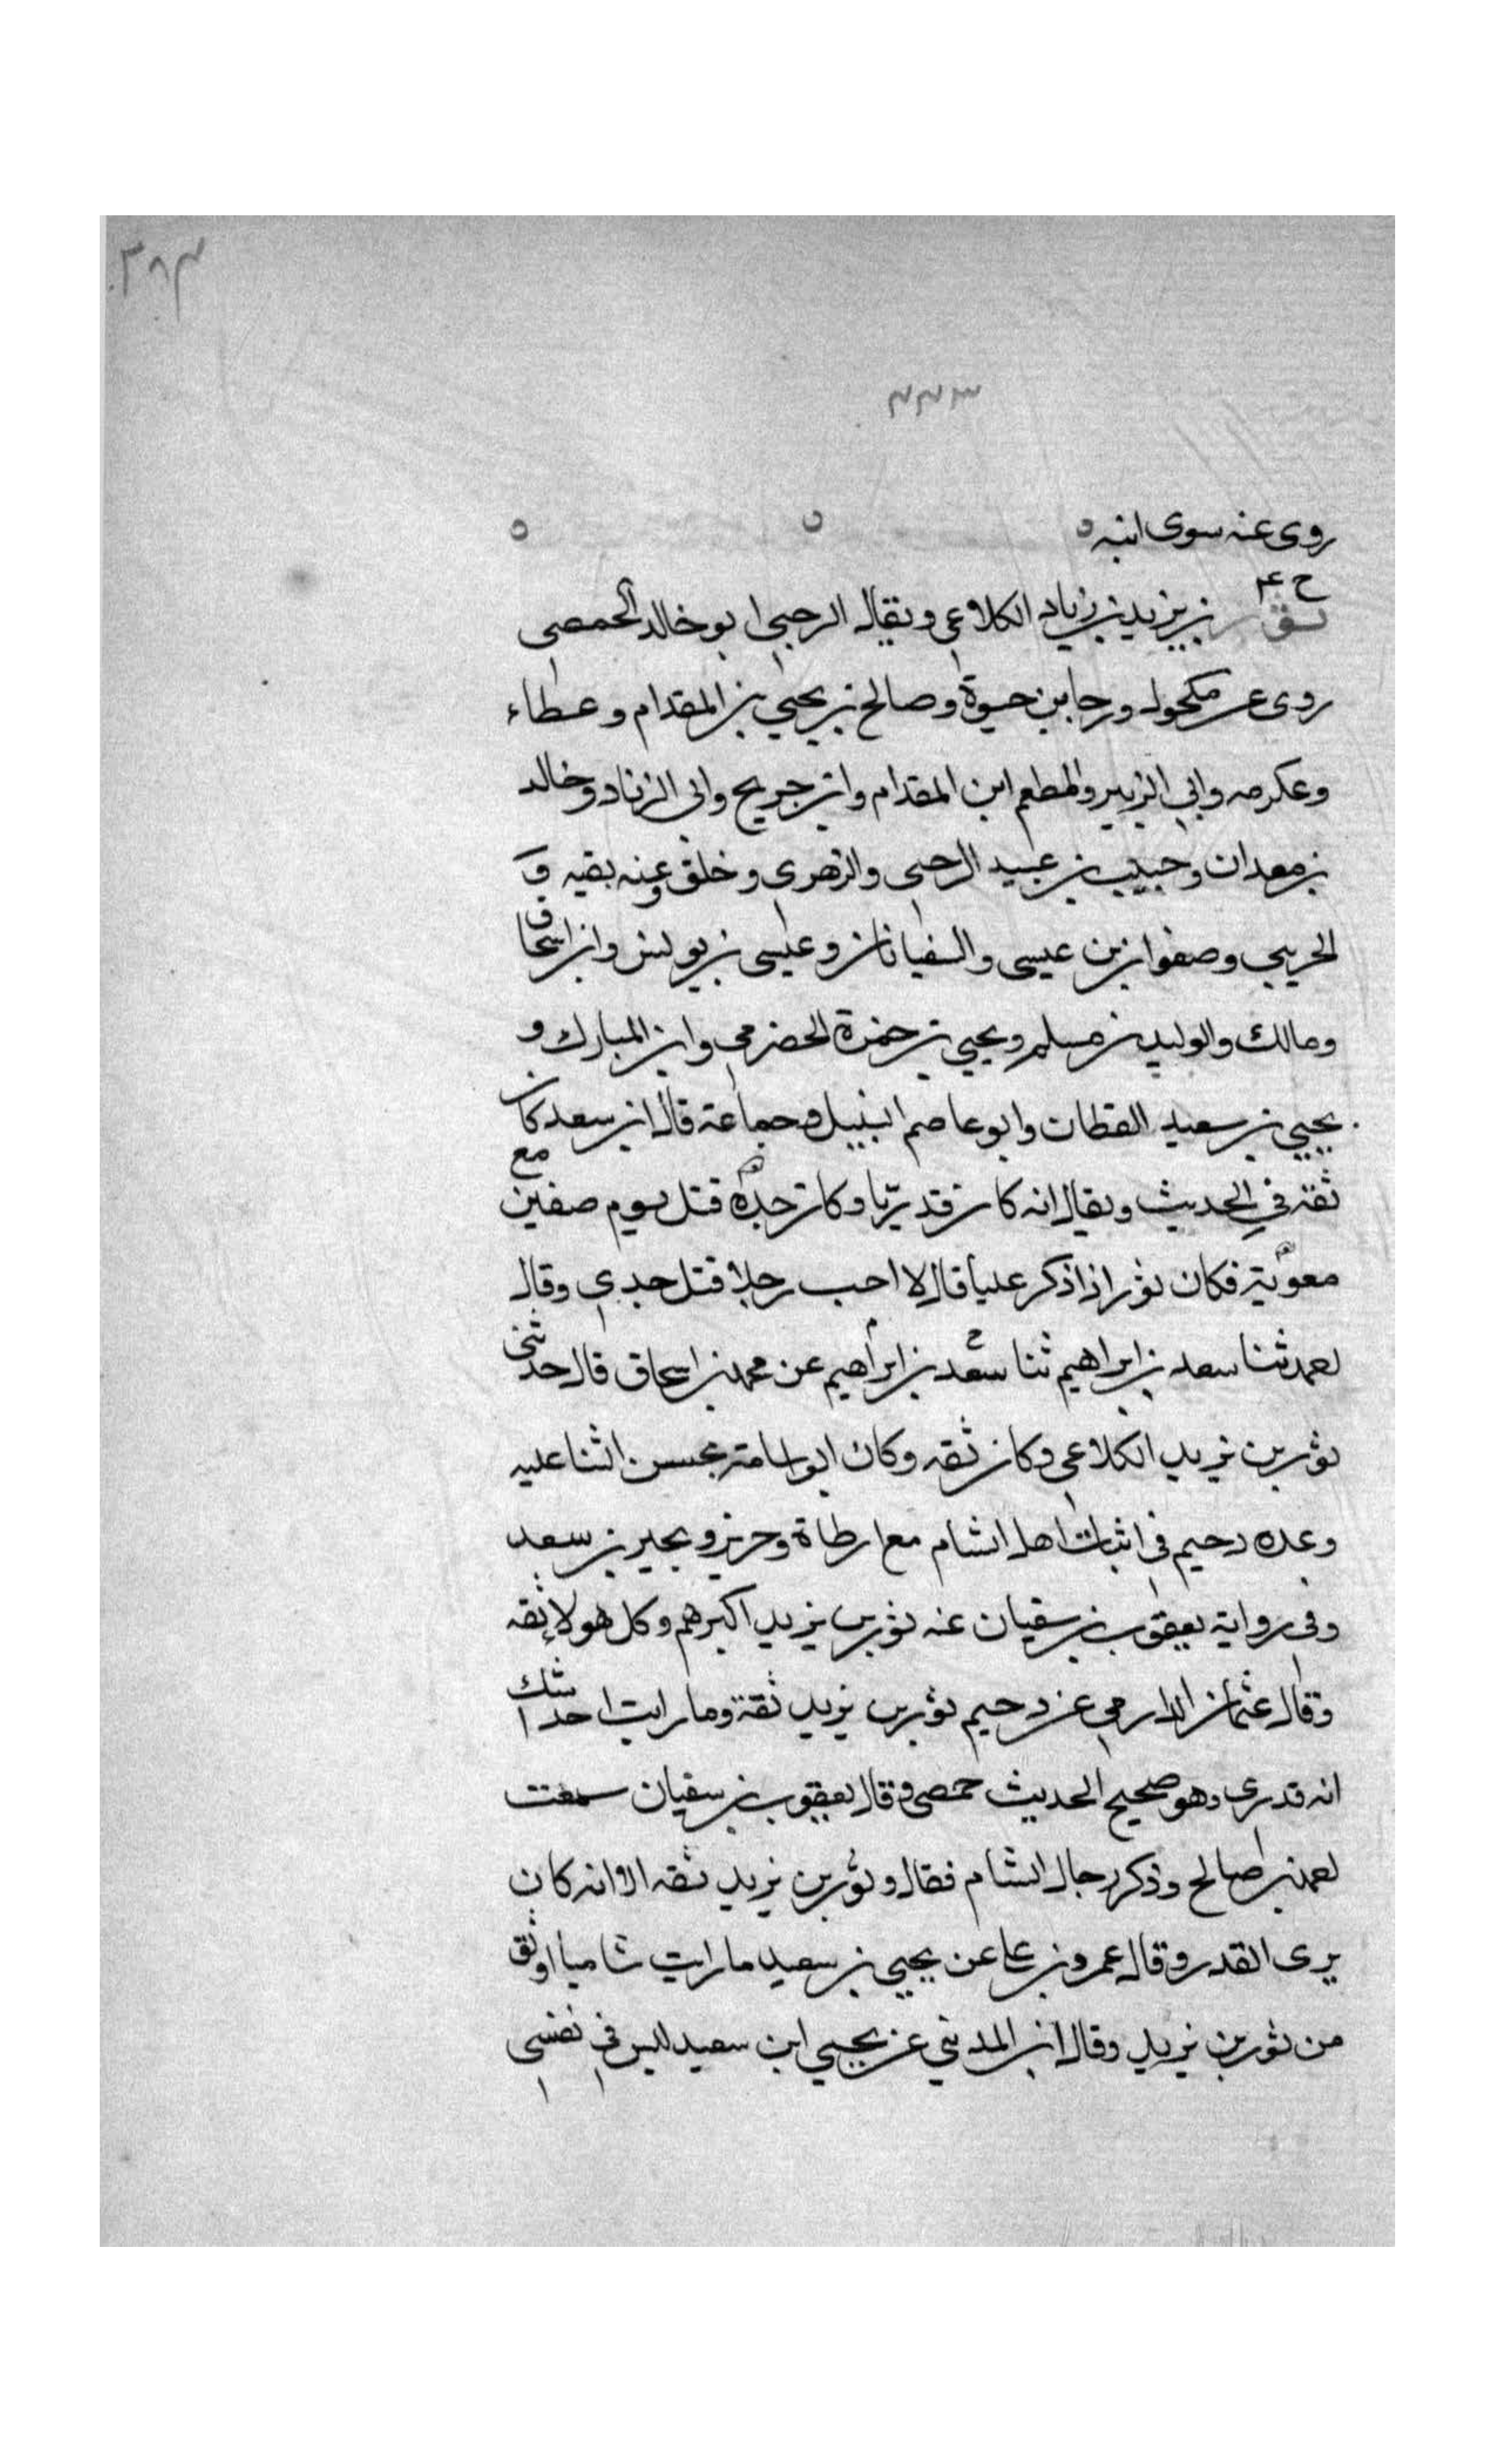 ٣٨٣
٣٣٣
روى عنه سوى ابنه ه
خ ٤
ثور بن يزيد بن زياد الكلاعي ويقال الرحبي ابو خالد الحمصي
روى عن مكحول ورجا بن حيوة وصالح بن يحيي بن المقدام وعطاء
وعكرمه وابي الزبير والمطعم ابن المقدام وابن جريج وابي الزناد وخالد
بن معدان وحبيب بن عبيد الرحبي والزهري وخلق وعنه بقيه و
الخريبي وصفوان بن عيسى والسفيانان وعيسى بن يونس وابن اسحاق
ومالك والوليد بن مسلم ويحيي بن حمزة الحضرمي وابن المبارك و
يحيي بن سعيد القطان وابو عاصم النبيل وجماعة قال ابن سعد كان
ثقة في الحديث ويقال انه كان قدريا وكان جده قتل يوم صفين مع
معوية فكان ثور اذا ذكر عليا قال لا احب رجلا قتل جدي وقال
سعد بن ابراهيم ثنا سعد بن ابراهيم عن محمد بن اسحاق قال حدثني
ثور بن يزيد الكلاعي وكان ثقه وكان ابو اسامة يحسن الثنا عليه
وعده دحيم في اثبات اهل الشام مع ارطاة وحريز وبحير بن سعد
وفي رواية يعقوب بن سفيان عنه ثور بن يزيد اكبرهم وكل هولا ثقه
وقال عثمان الدارمي عن دحيم ثور بن يزيد ثقة وما رايت احدا يشك
انه قدري وهو صحيح الحديث حمصي وقال يعقوب بن سفيان سمعت
بن صالح وذكر رجال الشام فقال وثور بن يزيد ثقه الا انه كان
يرى القدر وقال عمرو بن علي عن يحيي بن سعيد ما رايت شاميا اوثق
من ثور بن يزيد وقال ابن المديني عن يحيي ابن سعيد ليس في نفسي